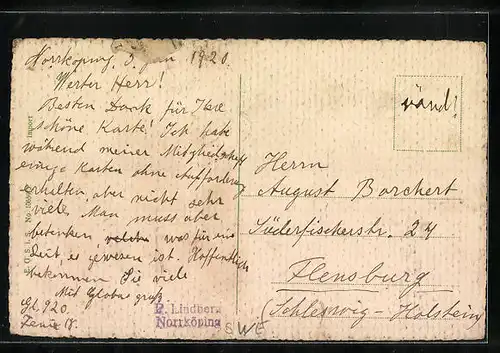 Norrköping, 3. Jan 1920.
Werter Herr!
Besten Dank für Ihre
schöne Karte! Ich habe
während meiner Mitgliedschaft
einige Karten ohne Aufforderung
erhalten, aber nicht sehr
viele. Man muss aber
bedenken was für eine
Zeit es gewesen ist. Hoffentlich
bekommen Sie viele
Mit Globus gruß
Gl. 920.
E. Lindberg
Norrköping
SWE
vänd!
Herrn
August Borchert
Süderfischerstr. 24
Flensburg
(Schleswig-Holstein)
Import